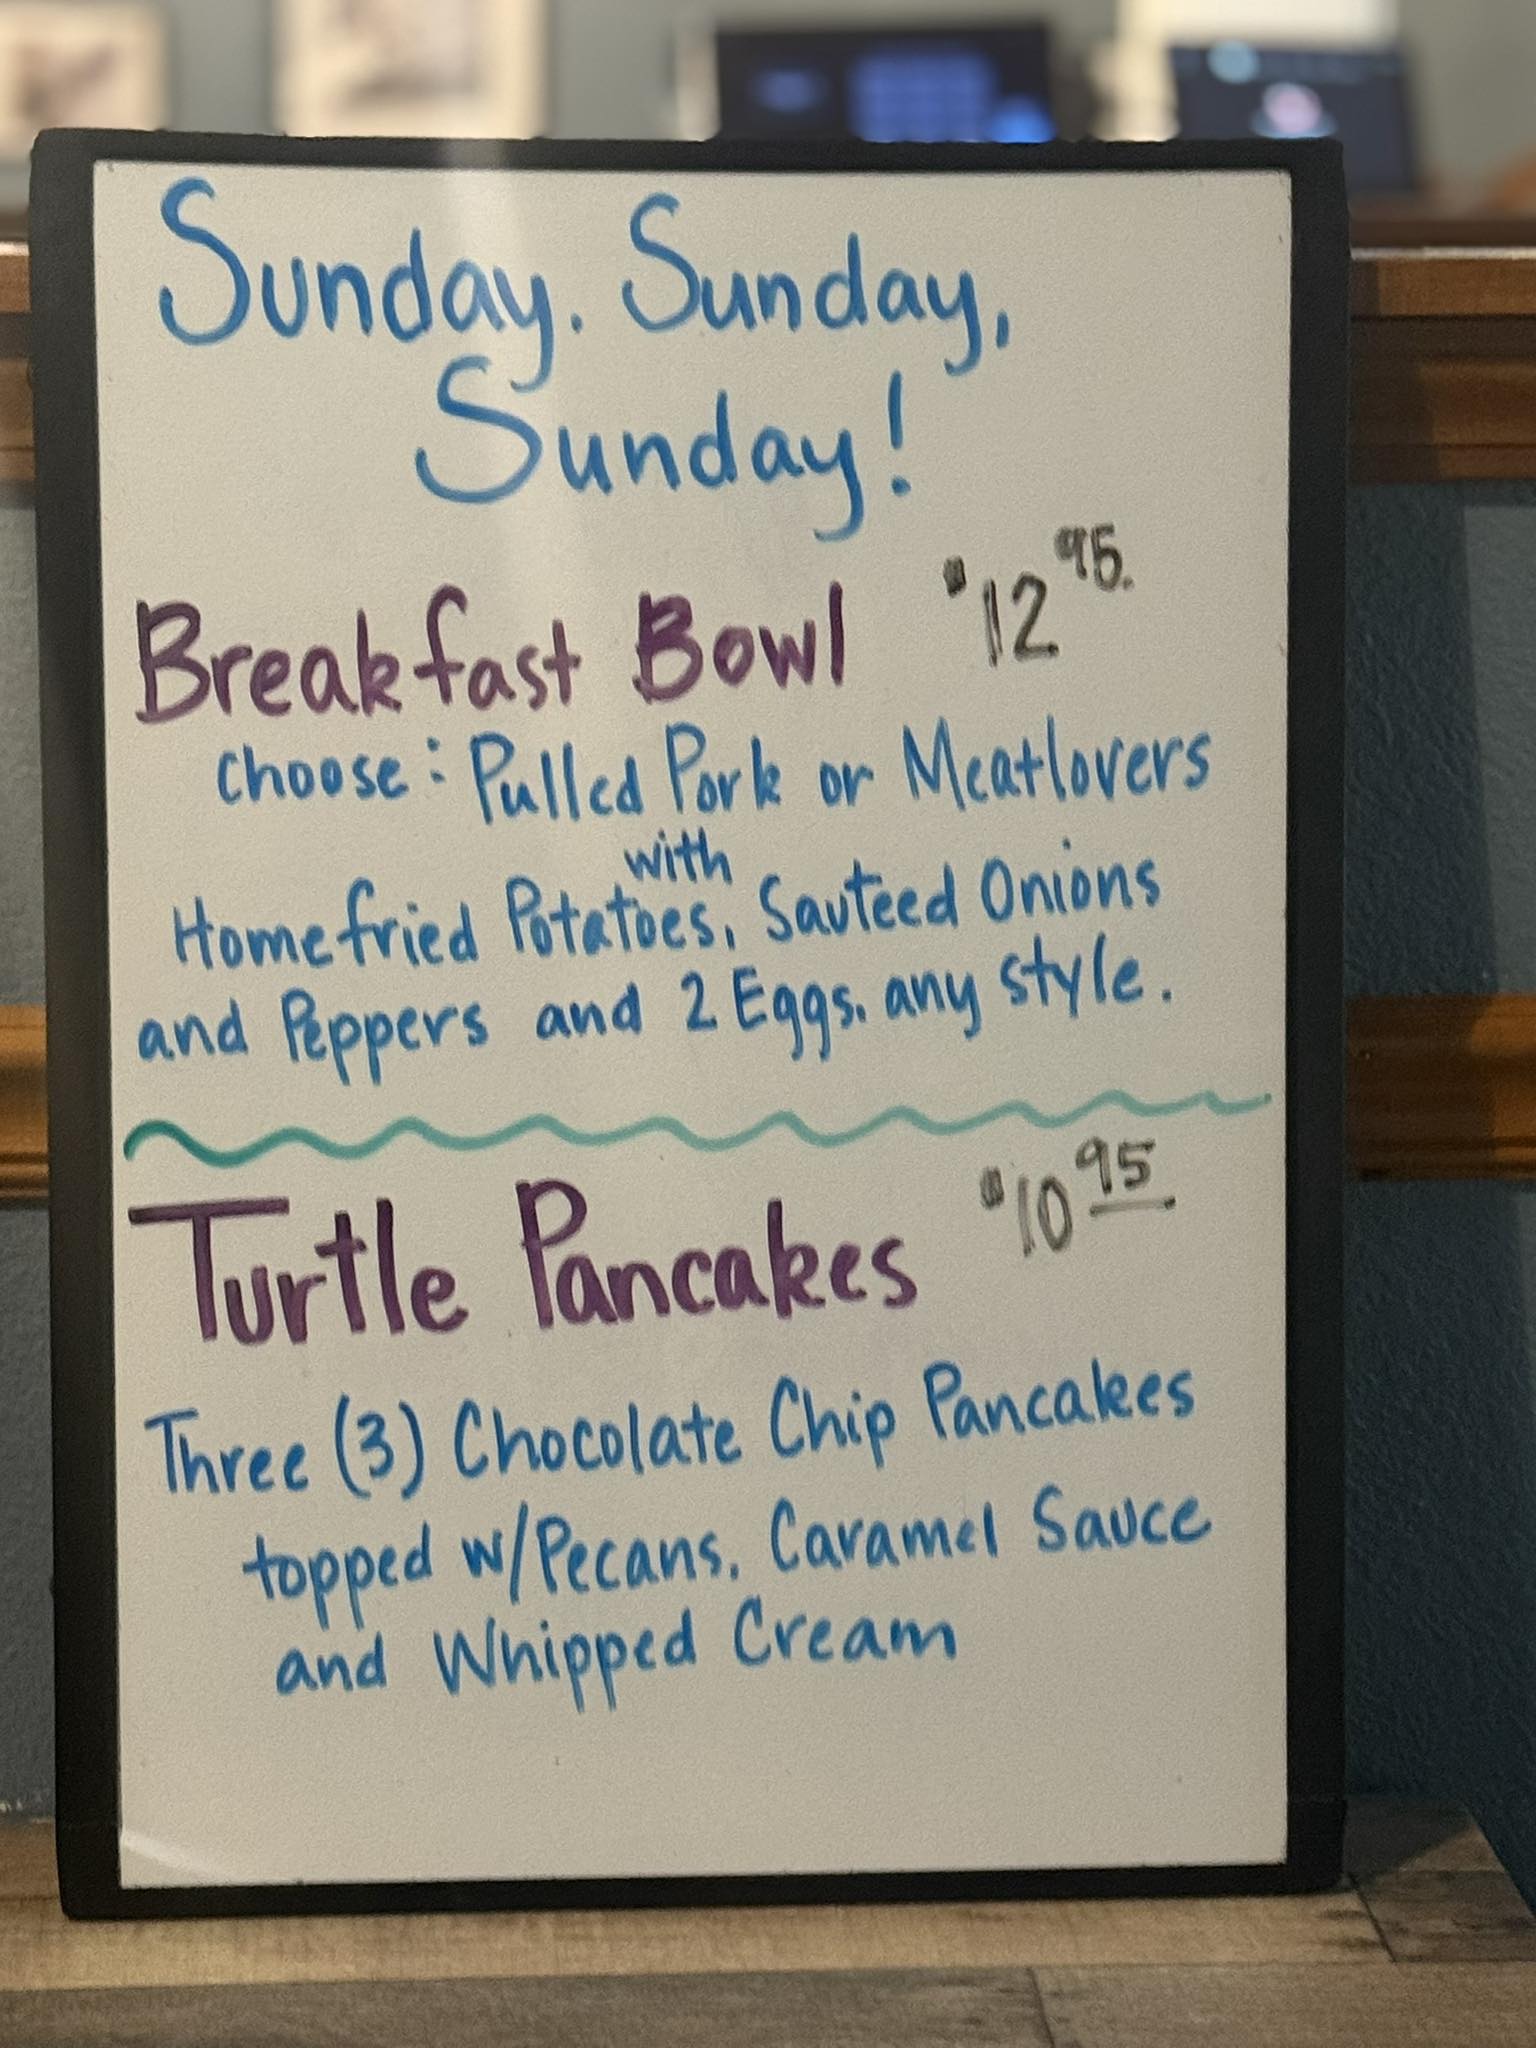 Sunday. Sunday,
Sunday!
Breakfast Bowl $12 95.
Choose: Pulled Pork or Meatlovers
with
Homefried Potatoes, Sauteed Onions
and Peppers and 2 Eggs. any style.
Turtle Pancakes $10 95
Three (3) Chocolate Chip Pancakes
topped w/Pecans, Caramel Sauce
and Whipped Cream